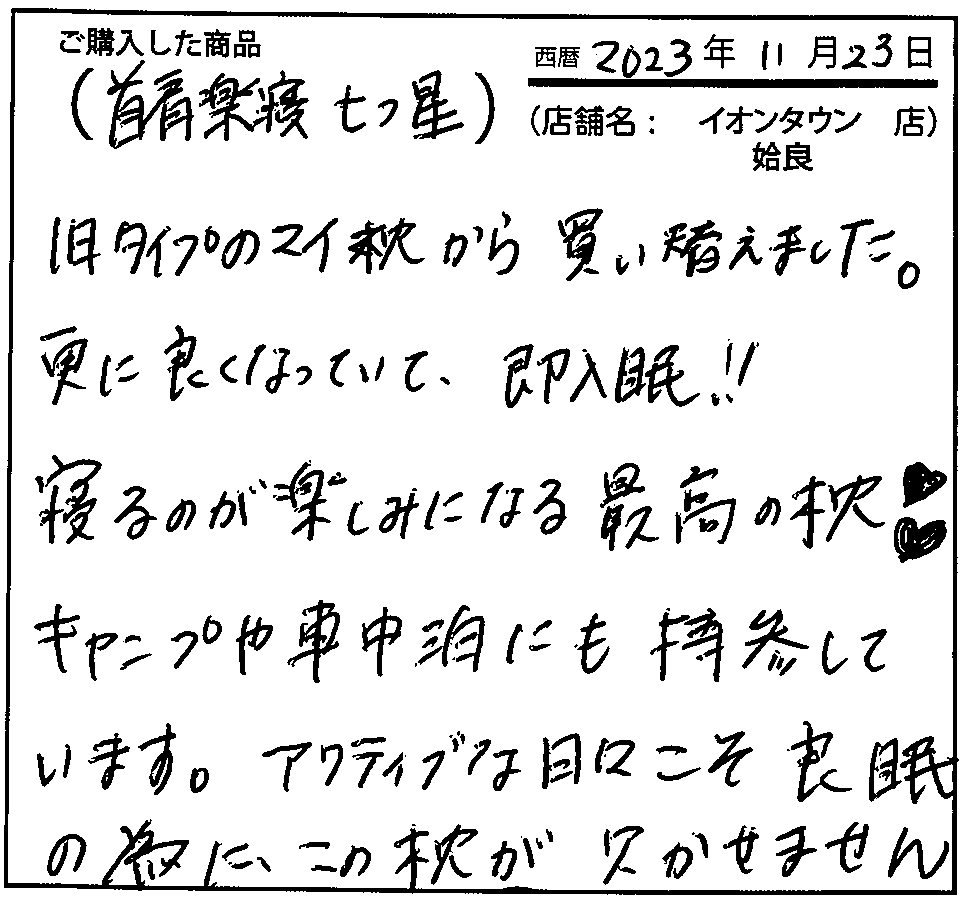 ご購入した商品
西暦 2023年 11月23日
(首肩楽寝 七つ星)
(店舗名： イオンタウン 店)
姶良
旧タイプのマイ枕から 買い替えました。
更に良くなっていて、即入眠!!
寝るのが楽しみになる最高の枕♥
♥
キャンプや車中泊にも持参して
います。アクティブな日々こそ良眠
の為に、この枕が欠かせません